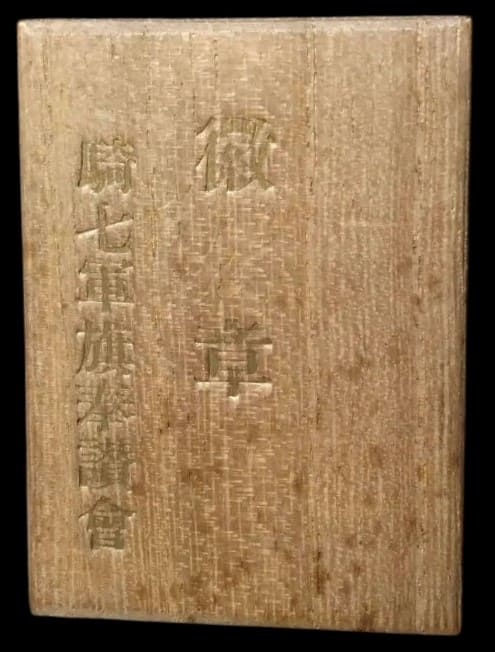 徽章
騎七軍旗奉讃會